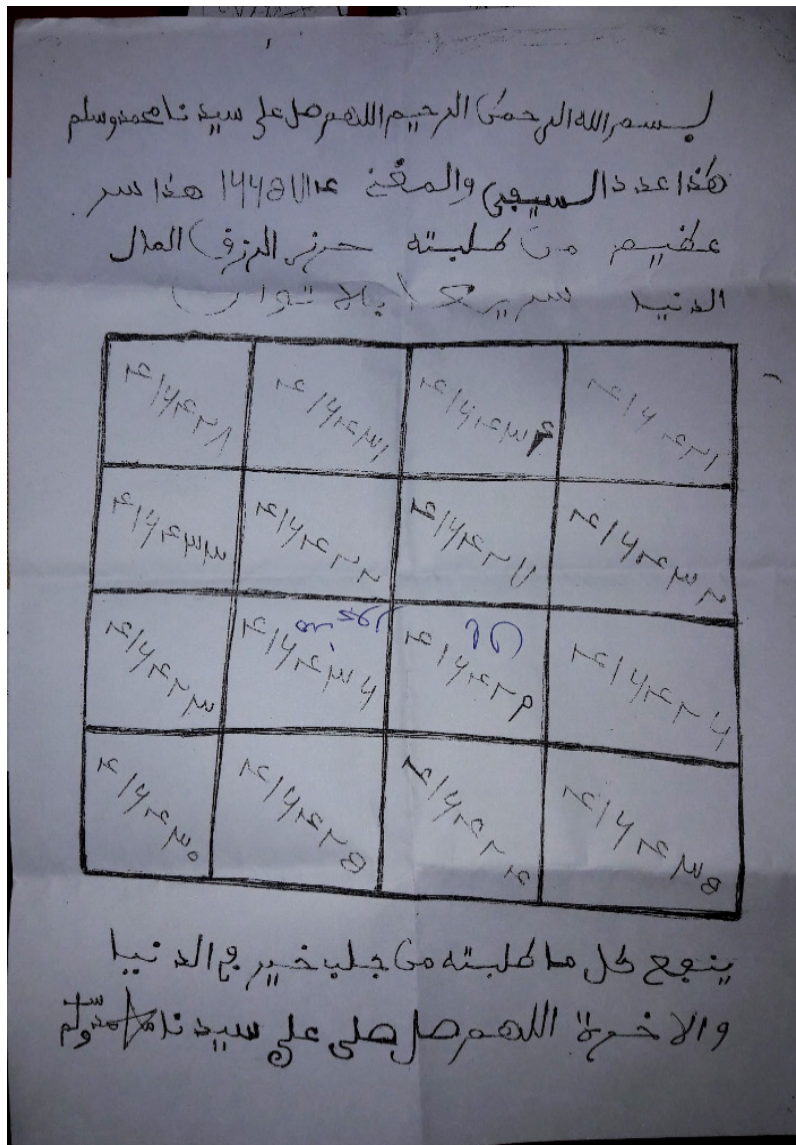 بسم الله الرحمن الرحيم اللهم صل على سيدنا محمد وسلم
هذا عدد السيفي والمغني ١٦٦٥٧١٤ هذا سر
عظيم من طلبته حرز الرزق المال
الدنيا سريعا بلا توان
٤١٦٤٢١ ٤١٦٤٣٤ ٤١٦٤٣١ ٤١٦٤٢٨
٤١٦٤٣٢ ٤١٦٤٢٧ ٤١٦٤٢٢ ٤١٦٤٣٣
٤١٦٤٢٦ ٤١٦٤٢٩ ٤١٦٤٣٦ ٤١٦٤٢٣
٤١٦٤٣٥ ٤١٦٤٢٤ ٤١٦٤٢٥ ٤١٦٤٣٠
ينجع كل ما طلبته من جلب خير في الدنيا
والاخرة اللهم صل صلى على سيدنا محمد وسلم